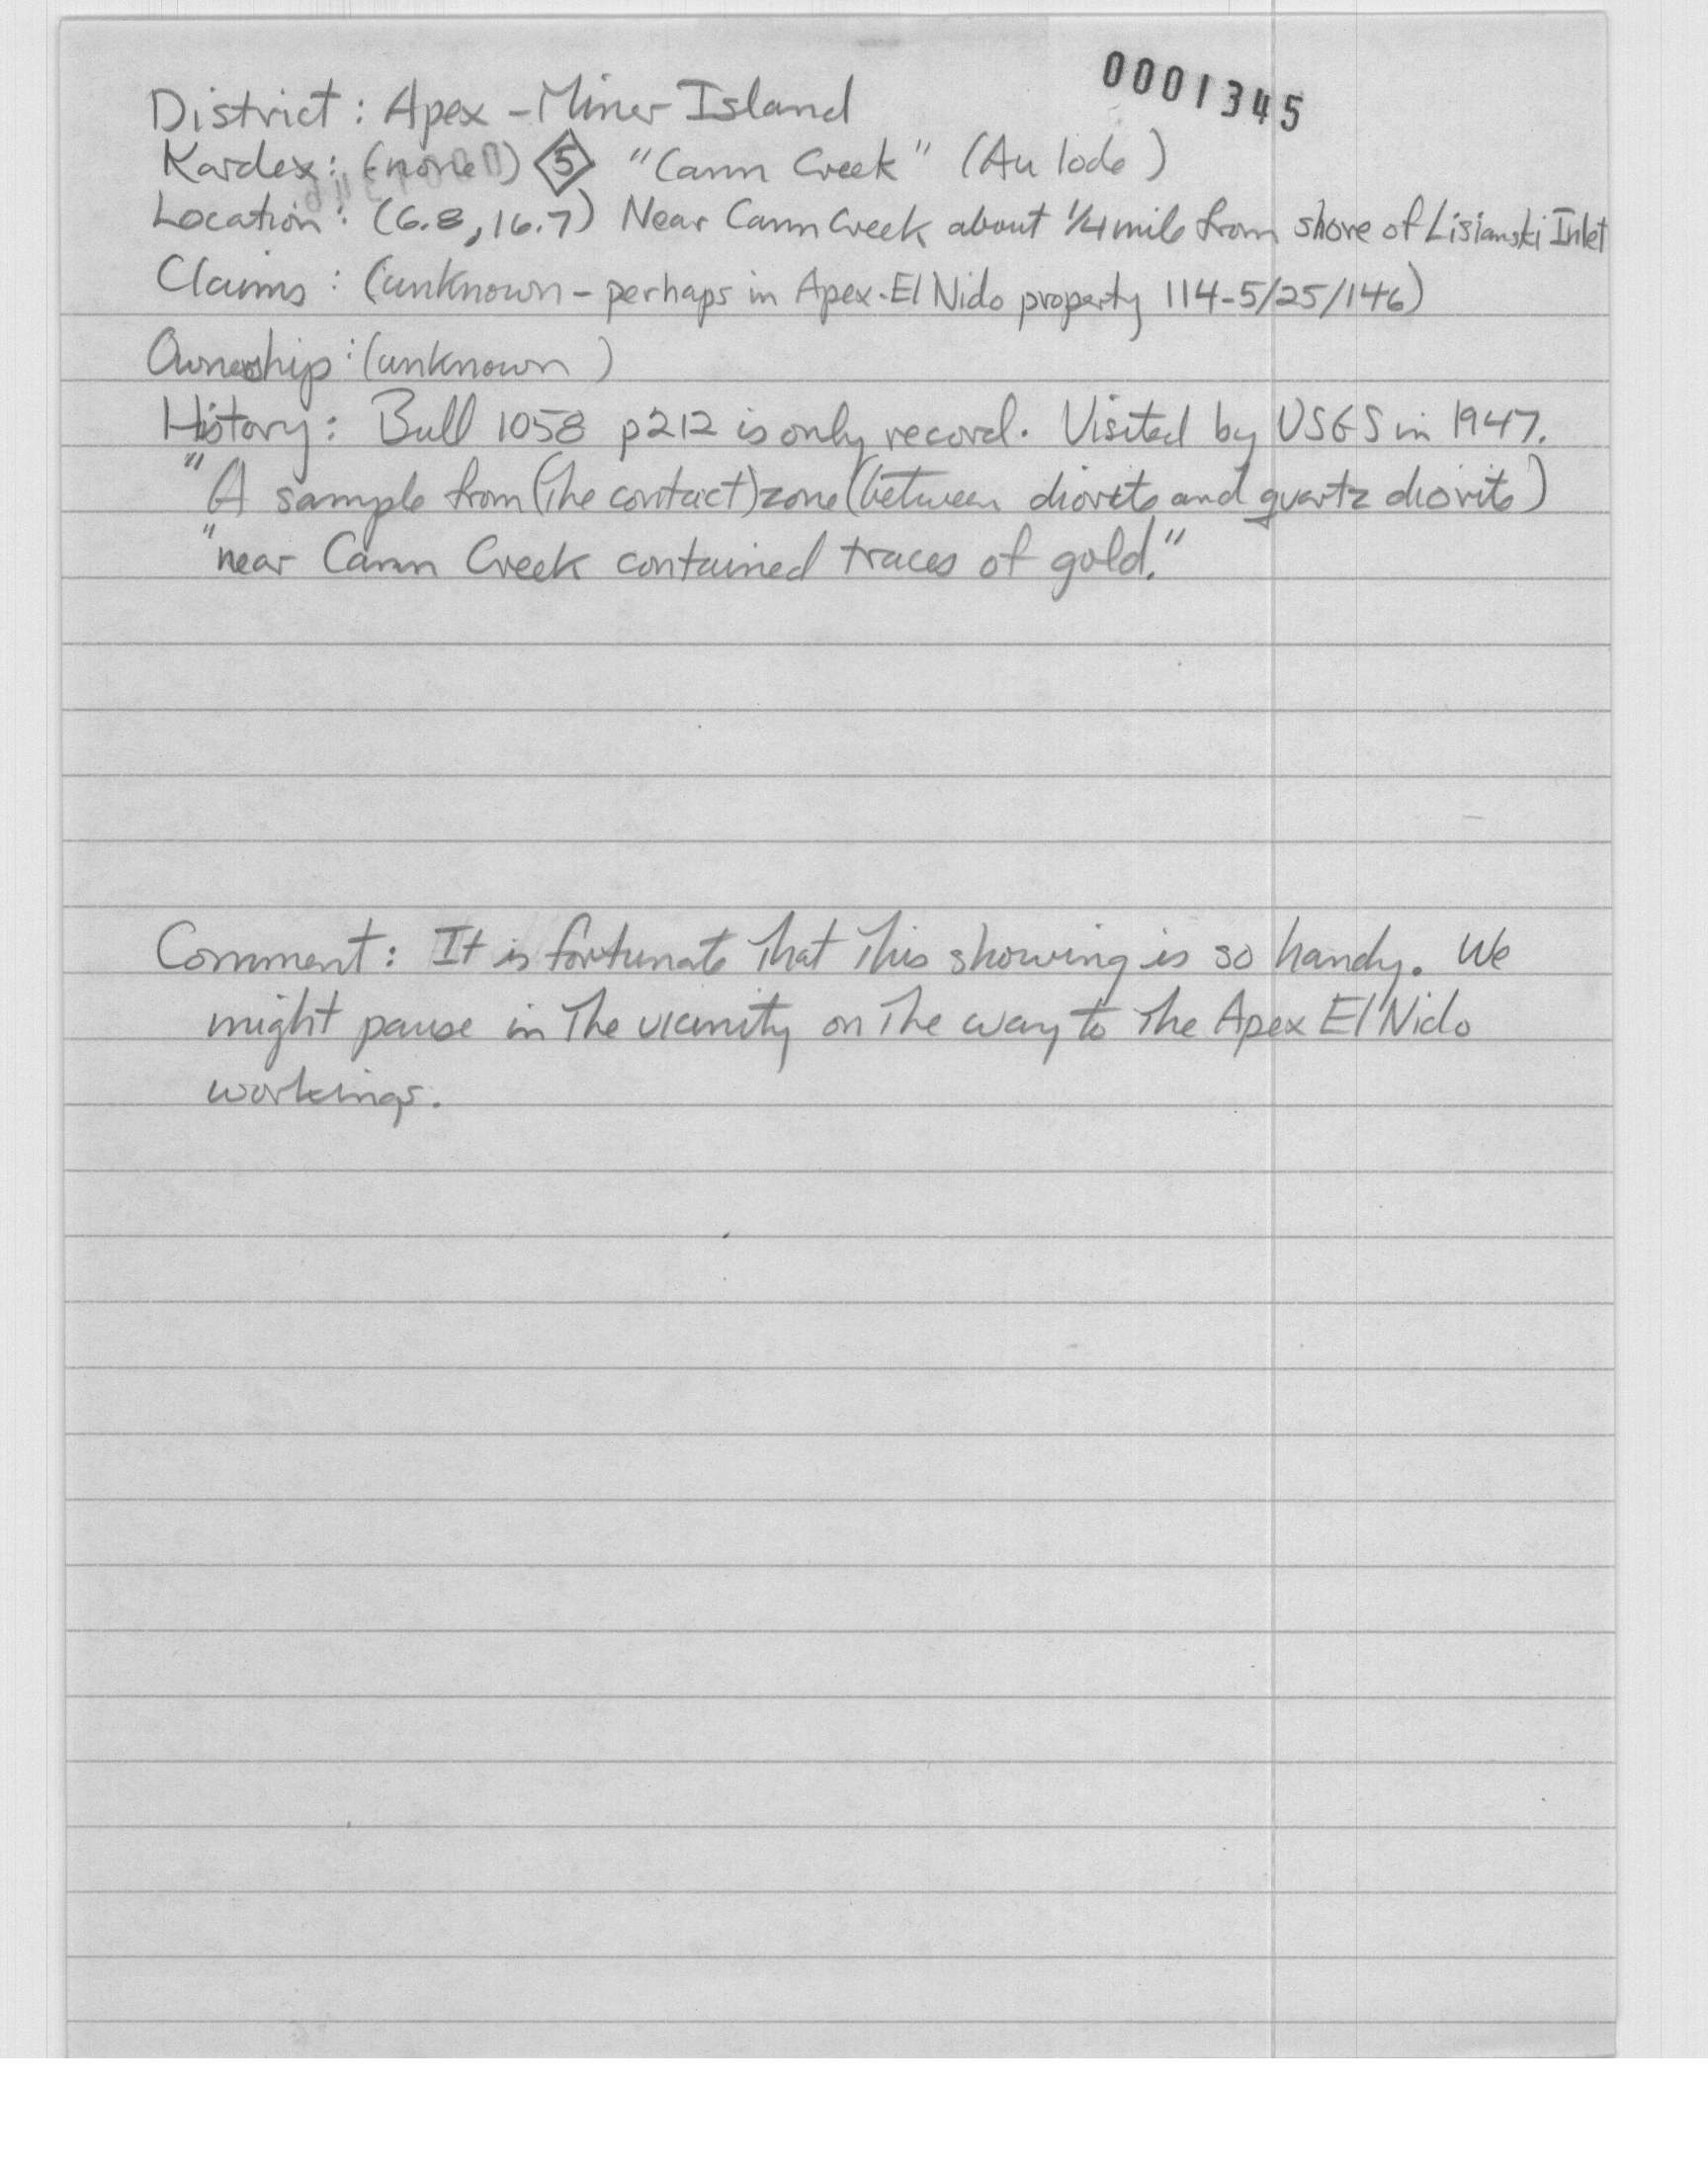 0001345
District: Apex - Miner Island
Kardex: (none) 5 "Cann Creek" (Au lode)
Location: (6.8, 16.7) Near Cann Creek about 1/4 mile from shore of Lisianski Inlet
Claims: (unknown - perhaps in Apex-El Nido property 114-5/25/146)
Ownership: (unknown)
History: Bull 1058 p212 is only record. Visited by USGS in 1947.
"A sample from (the contact) zone (between diorite and quartz diorite)
"near Cann Creek contained traces of gold."
Comment: It is fortunate that this showing is so handy. We
might pause in the vicinity on the way to the Apex El Nido
workings.